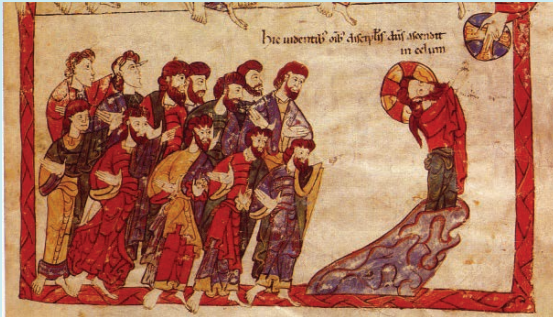 hic uidentib' oib' discipl'is dn̄s ascendit
in celum